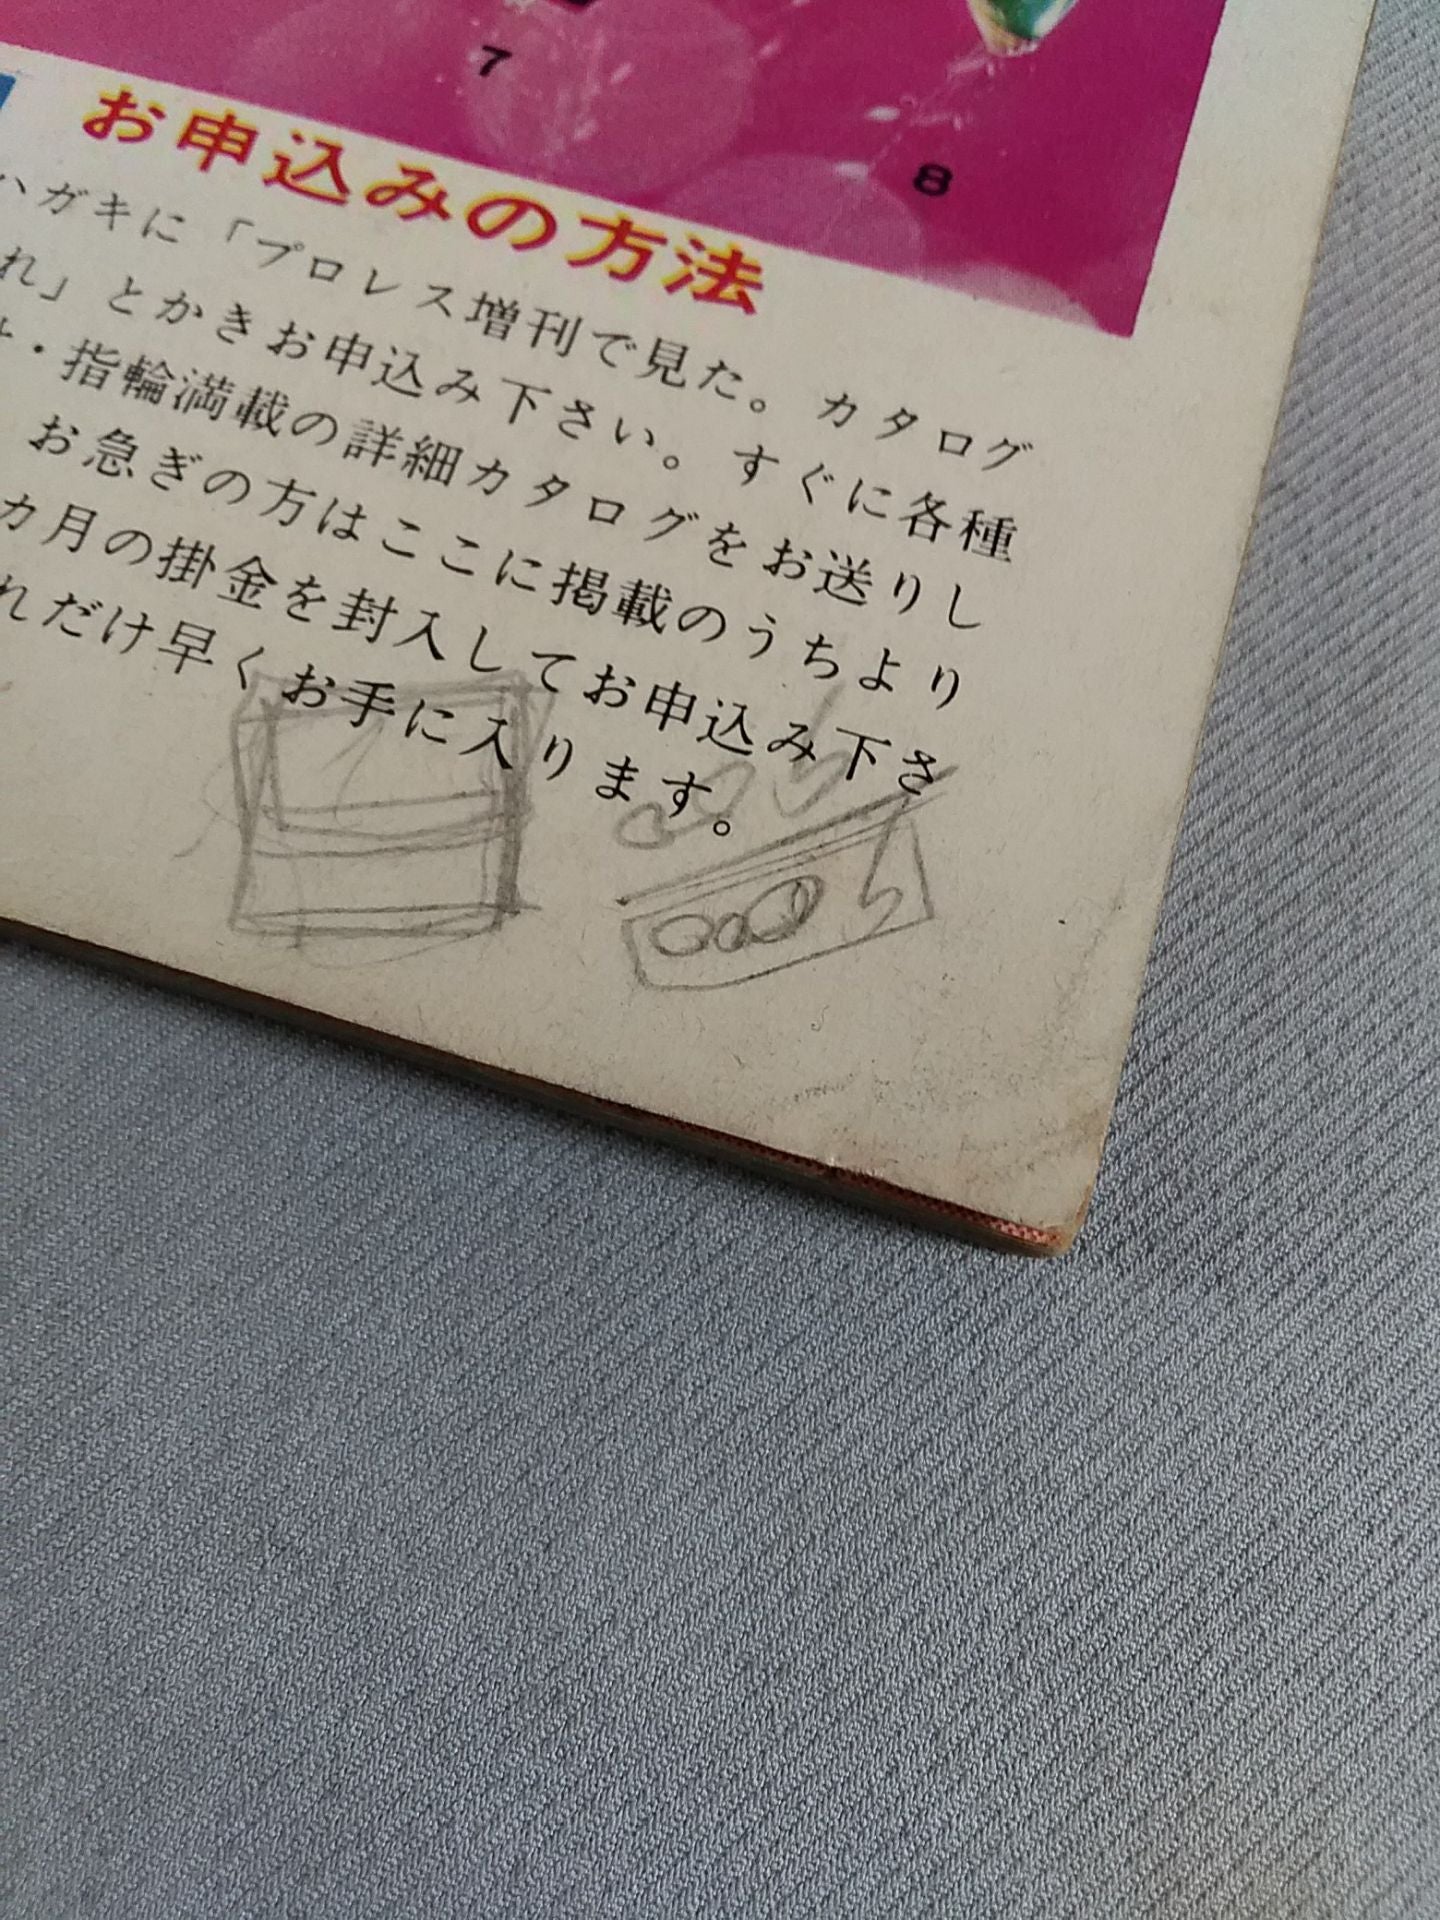 7
8
お申込みの方法
ハガキに「プロレス増刊で見た。カタログ
れ」とかきお申込み下さい。すぐに各種
・指輪満載の詳細カタログをお送りし
お急ぎの方はここに掲載のうちより
カ月の掛金を封入してお申込み下さ
れだけ早くお手に入ります。